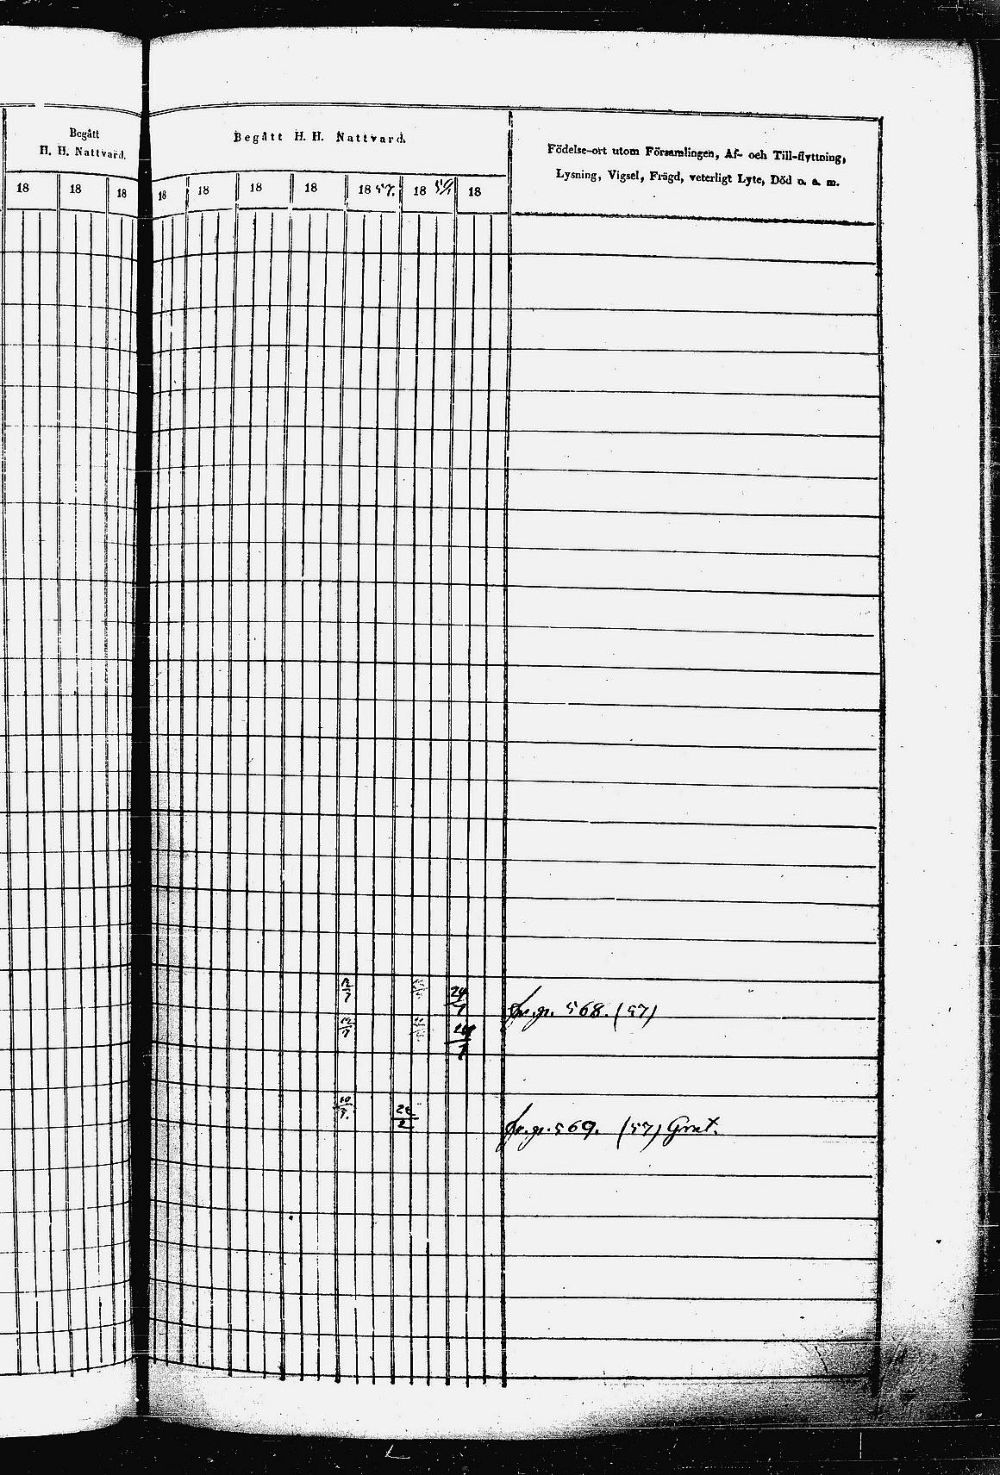 Begått
H. H. Nattvard.
18 18 18
Begått H. H. Nattvard.
18 18 18 18 18 57. 18 18
Födelse-ort utom Församlingen, Af- och Till-flyttning,
Lysning, Vigsel, Frägd, veterligt Lyte, Död o. s. m.
12/7 24/7
fr. p. 568. (57)
12/7
10/7. 24/2
fr. p. 569. (57) Grat.